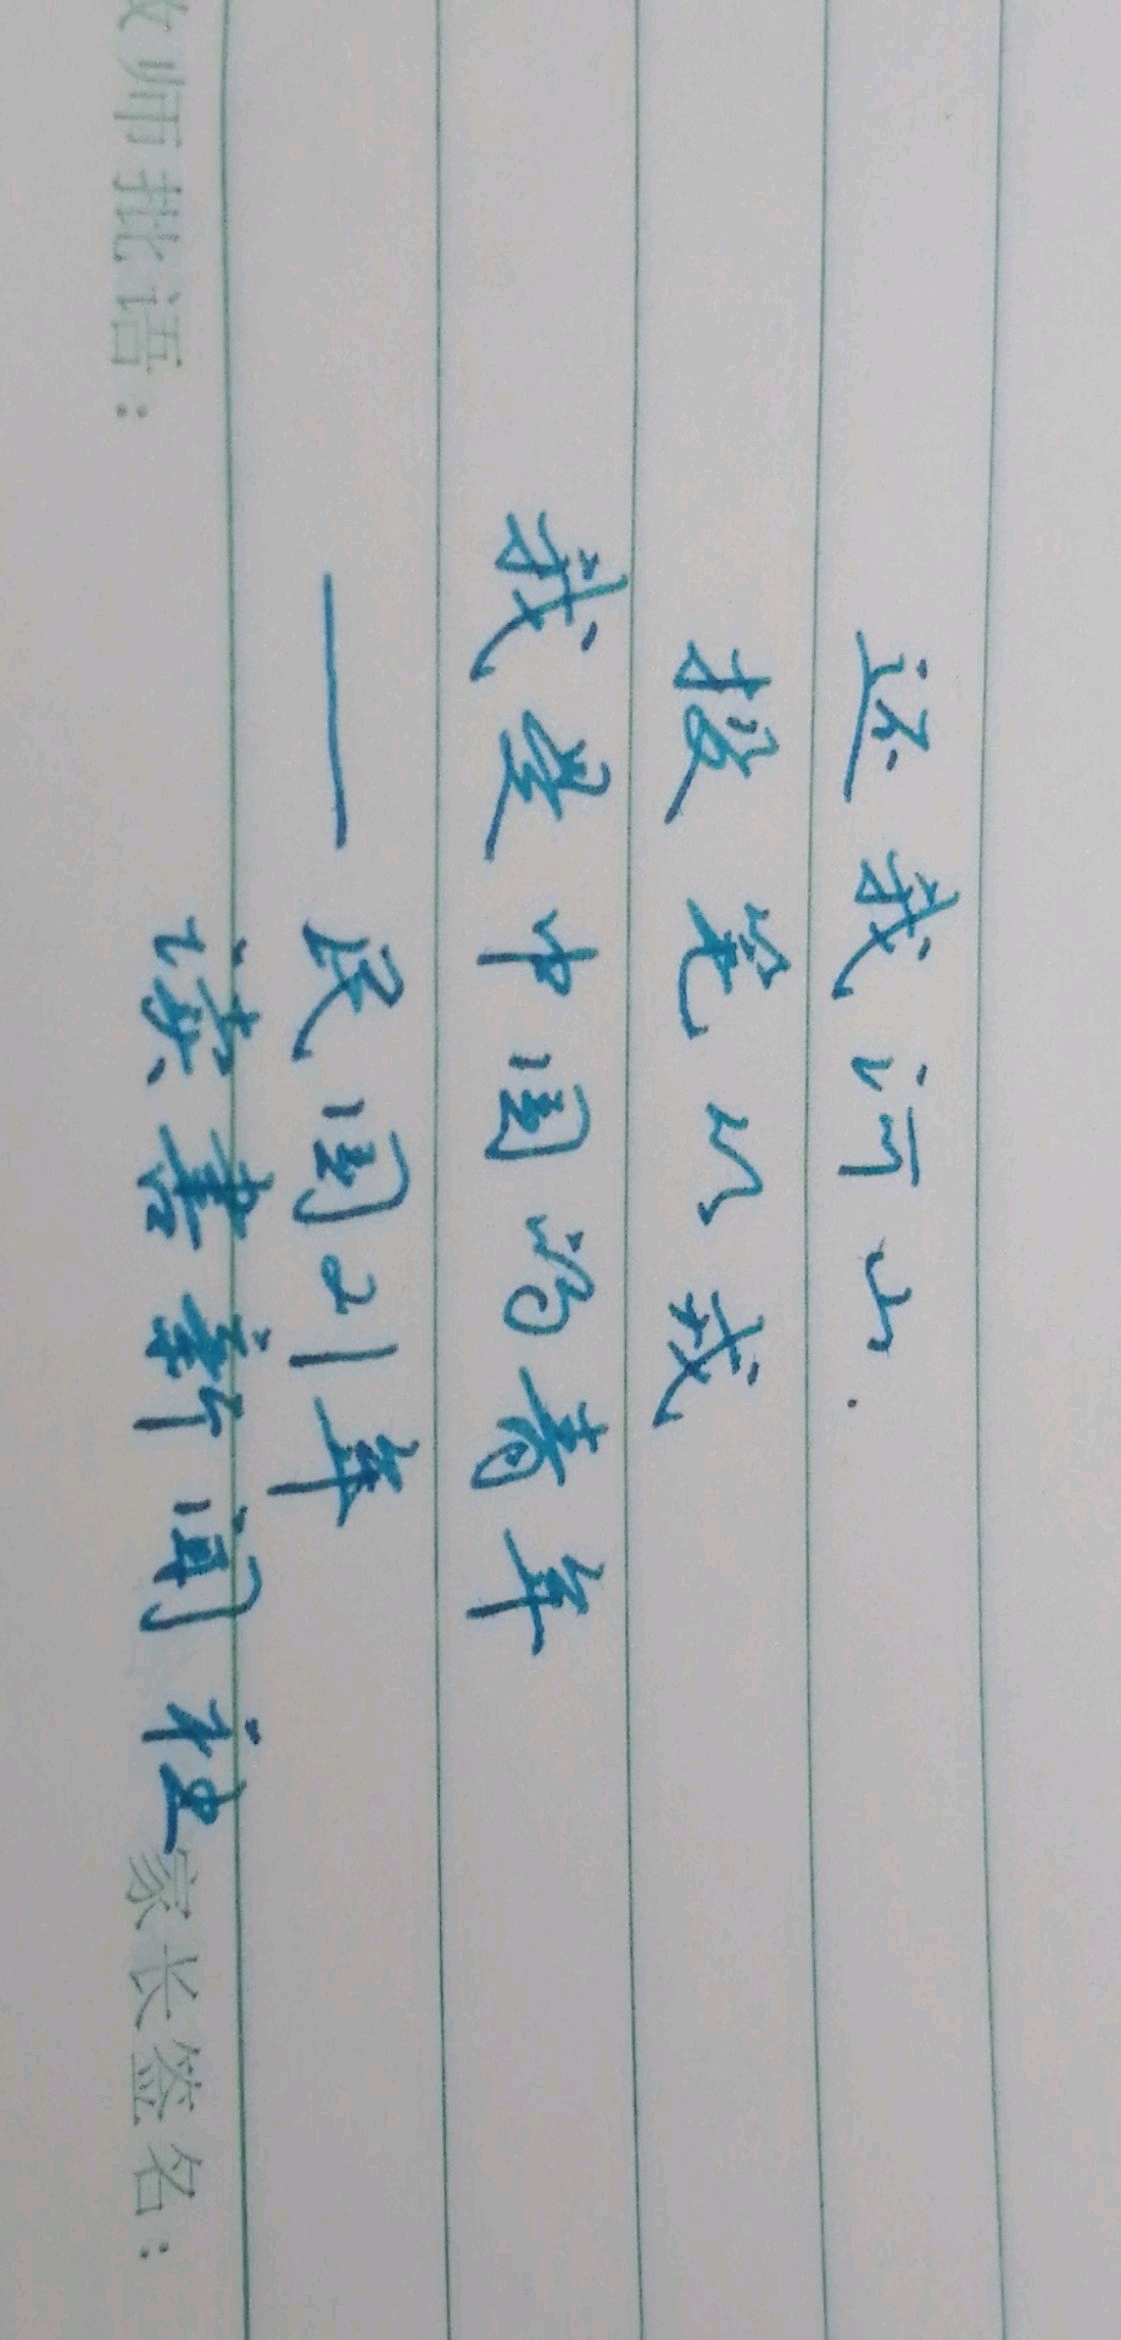 还我河山.
投笔从戎
我是中国的青年
——民国21年
读书新闻社
师批语： 家长签名：